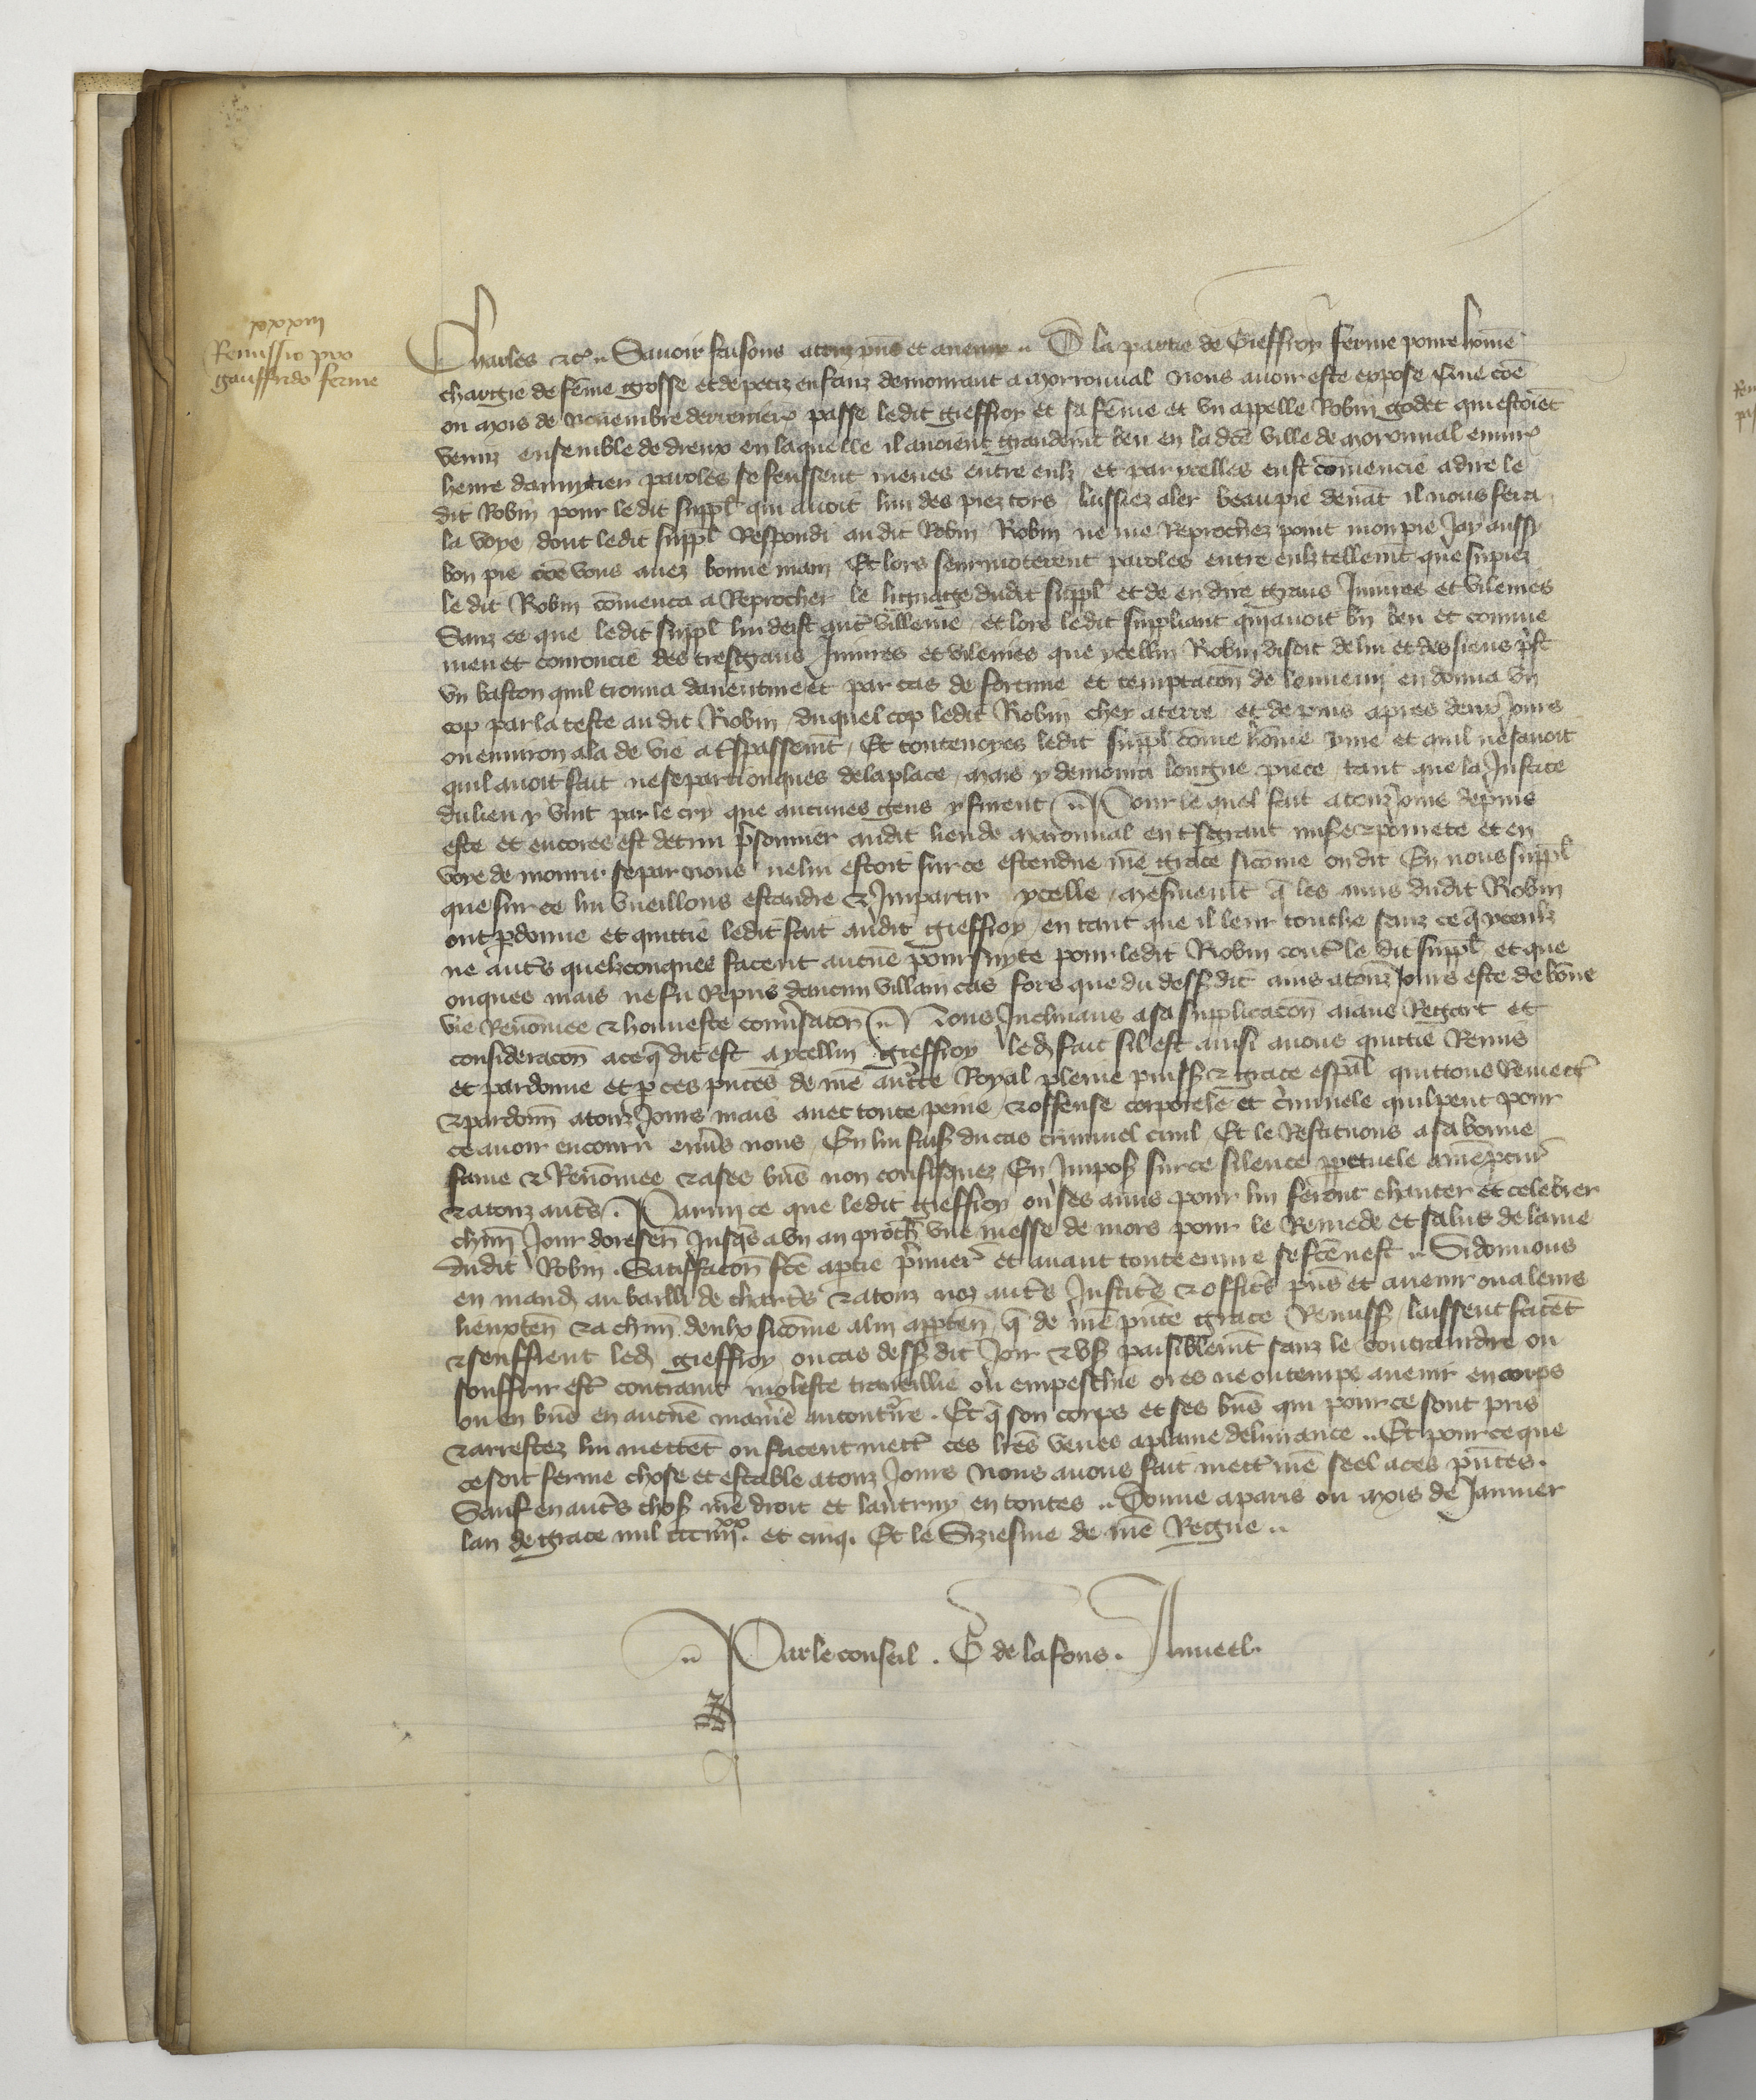 xxxiii
Remissio pro
gauffrido ferme
Charles etc. Savoir faisons a touz pns et avenir. De la partie de Gieffroy ferme povre home
chargie de feme grosse et de petiz enfanz demourant a Moronval Nous avoir este expose Que coe
ou mois de Novembre derrenier passe ledit gieffroy et sa feme et un appelle Robin godet qui estoiet
venuz ensemble de dreux en laquelle il avoient grandemt beu en lad ville de moronval environ
heure paroles se feussent meues entre eulz et par ycelles eust comencie a dire le
dit Robin pour ledit suppl qui avoit lun des piez tors laissiez aler beau pie devat il nous fera
la voye dont ledit suppl Respondi au dit Robin Robin ne me Reprochez point mon pie Jay aussy
bon pie coe vous avez bonne main Et lors se murmoterent paroles entre eulz tellemt que
le dit Robin comenca a Reprocher le lignage dudit suppl et de en dire grans Injures et vilenies
Sanz ce que ledit suppl lui deist aut villenie, et lors ledit suppliant qui avoit bn beu et comme
meu et couroucie des tresgrans Injures et vilenies que ycellui Robin disoit de lui et des siens pst
un baston quil trouva daventure et par cas de fortune et temptacon de lennemi en donna un
cop par la teste au dit Robin, duquel cop ledit Robin chey a terre et depuis apres deux Jours
ou environ ala de vie a tspassemt, Et toutevoyes ledit suppl come home yvre et qui ne savoit
quil avoit fait ne se parti onques de la place, mais y demoura longue piece, tant que la Justice
du lieu y vint par le cry que aucunes gens y firent Pour le quel fait a touz Jours depuis
este et encores est detenu psonnier audit lieu de Maronval en tsgrant mise et povrete et en
voye de mourir se par nous ne lui estoit sur ce estendue nre grace sicome on dit En nous suppl
que sur ce lui vueillons estandre et Impartir ycelle, mesmemt q les amis dudit Robin
ont pdonne et quittie ledit fait audit gieffroy, en tant que il leur touche sanz ce q yceulz
ne auts quelzconques facent aucue poursuyte pour ledit Robin cont le dit suppl et que
onques mais ne fu Repris daucun villain cas fors que du dess dit ains a touz Jours este de bone
vie Renomee et honneste convsacon Nous Inclinans a sa supplicacon aians Regart et
consideracon a ce q dit est a ycellui gieffroy led fait sil est ainsi avons quittie Remis
et pardonne et p ces pntes de nre aucte Royal plenie puiss et grace espal quittons Remett
et pardonn a touz Jours mais avec toute peine et offense corporele et criminele quil peut pour
ce avoir encouru envs nous, En lui fais du cas criminel civil, Et le Restituons a sa bonne
fame et Renomee et a ses bns non confisquez En Impos sur ce silence ppetuele a nre pcur
et a touz auts. Parmi ce que ledit gieffroy ou ses amis pour lui feront chanter et celebrer
chun Jour doresen Jusqs a un an proch une messe de mors pour le Remede et salut de lame
dudit Robin. Satisfacon fce a ptie pmier et avant toute euvre se fce nest. Si donnons
en mand au bailli de chartes et a touz noz auts Justics et offics pns et avenir ou a leurs
lieuxten et a chun deulx sicome a lui apptien q de nre pnte grace Remiss laissent facent
et seuffrent led gieffroy ou cas dess dit Joir et us paisiblemt sanz le contraindre ou
souffrir est contraint moleste traveillie ou empeschie ores ne ou temps avenir en corps
ou en bns en aucue maniere au contre. Et q son corps et ses bns qui pour ce sont pris
et arrestez lui mettet ou facent mett ces lres veues a plaine delivrance. Et pour ce que
ce soit ferme chose et estable a touz Jours Nous avons fait mett nre seel a ces pntes.
Sauf en auts chos nre droit et lautruy en toutes. Donne a paris ou mois de Janvier
lan de grace mil ccc iiiixx. et cinq. Et le Siziesme de nre Regne.
Par le conseil. G de la fons.